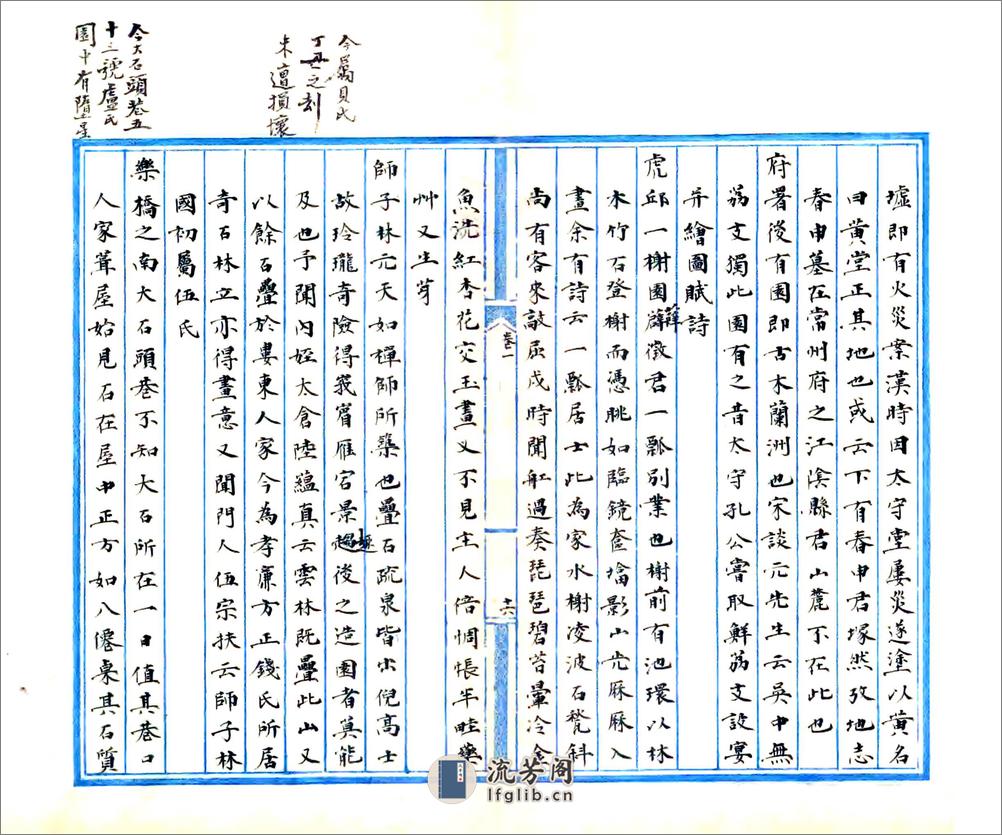 今屬貝氏
丁丑之刻
未遭損壞
今大石頭巷五
十三號盧氏
園中有墮星
墟即有火災案漢時因太守堂屢災遂塗以黃名
曰黃堂正其地也或云下有春申君塚然攷地志
春申墓在常州府之江陰縣君山麓不在此也
府署後有園即古木蘭洲也宋談元先生云吳中無
荔支獨此園有之昔太守孔公嘗取鮮荔支設宴
并繪圖賦詩
虎邱一榭園薜徵君一瓢別業也榭前有池環以林
薛
木竹石登榭而憑眺如臨鏡奩塔影山光厤厤入
畫余有詩云一瓢居士此為家水榭凌波石甃斜
尚有客來敲屈戍時聞舡過奏琵琶碧苔暈冷金
魚洗紅杏花交玉畫乂不見主人倍惆悵半畦藥
艸又生芽
師子林元天如禪師所築也疊石疏泉皆出倪高士
故玲瓏奇險得莪宵雁宕景趣後之造園者莫能
及也予聞內姪太倉陸蘊真云雲林既疊此山又
以餘石疊於婁東人家今為孝廉方正錢氏所居
奇石林立亦得畫意又聞門人伍宗扶云師子林
國初屬伍氏
樂橋之南大石頭巷不知大石所在一日值其巷口
人家葺屋始見石在屋中正方如八僊桌其石質
卷一
十六
流芳阁
lfglib.cn